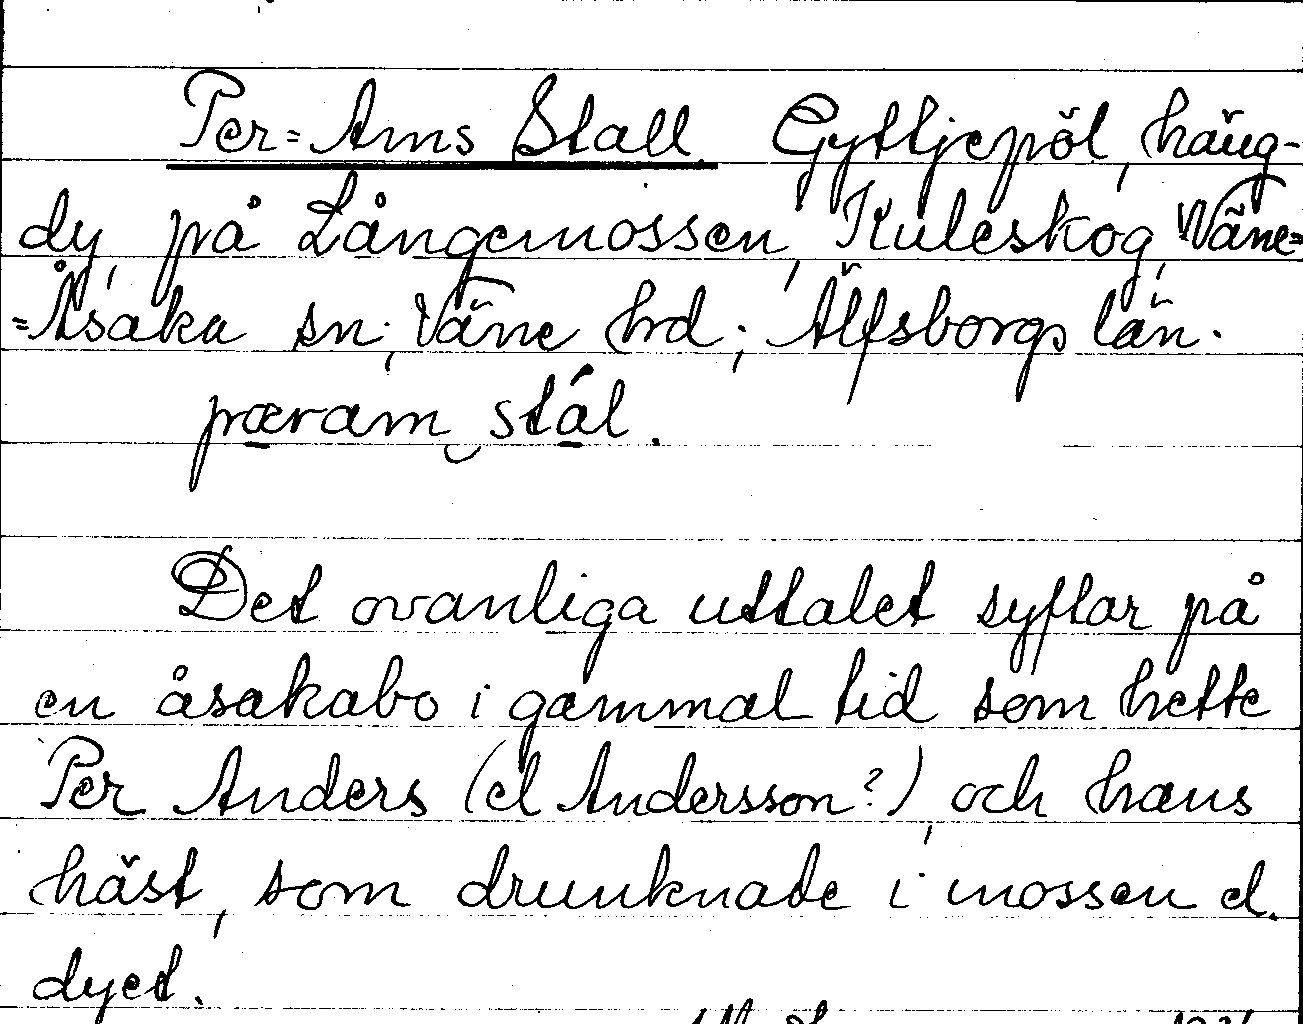 Per=Ams Stall. Gyttjepöl, häng-
dy, på Långemossen, Kuleskog, Väne=
=Åsaka sn; Väne hrd; Älfsborgs län.
pæram‿stál.
Det ovanliga uttalet syftar på
en åsakabo i gammal tid som hette
Per Anders (el Andersson?), och hans
häst, som drunknade i mossen el.
dyet.